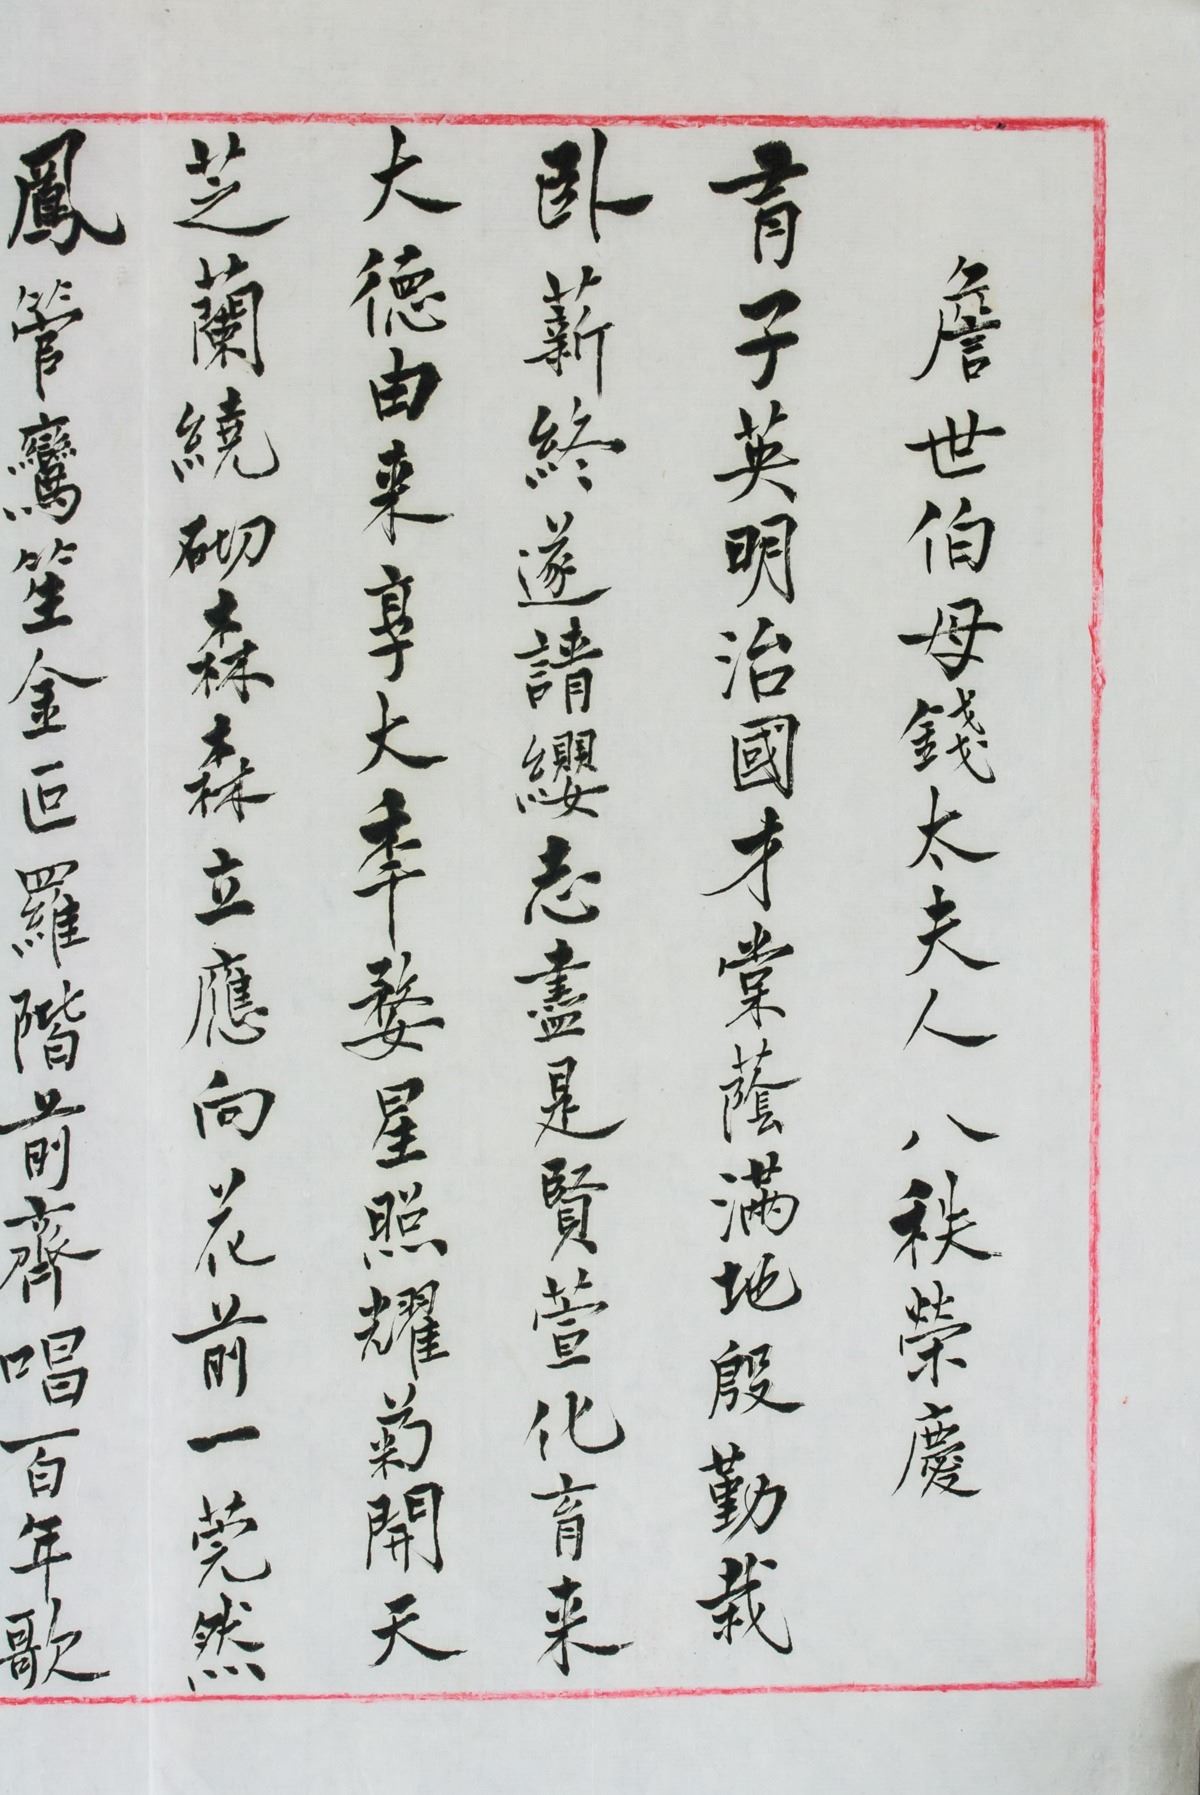 詹世伯母錢太夫人八秩榮慶
育子英明治國才棠蔭滿地殷勤栽
臥薪終遂請纓志盡是賢萱化育来
大德由来享大秊婺星照耀菊開天
芝蘭繞砌森森立應向花前一莞然
鳳管鸞笙金叵羅階前齊唱百年歌